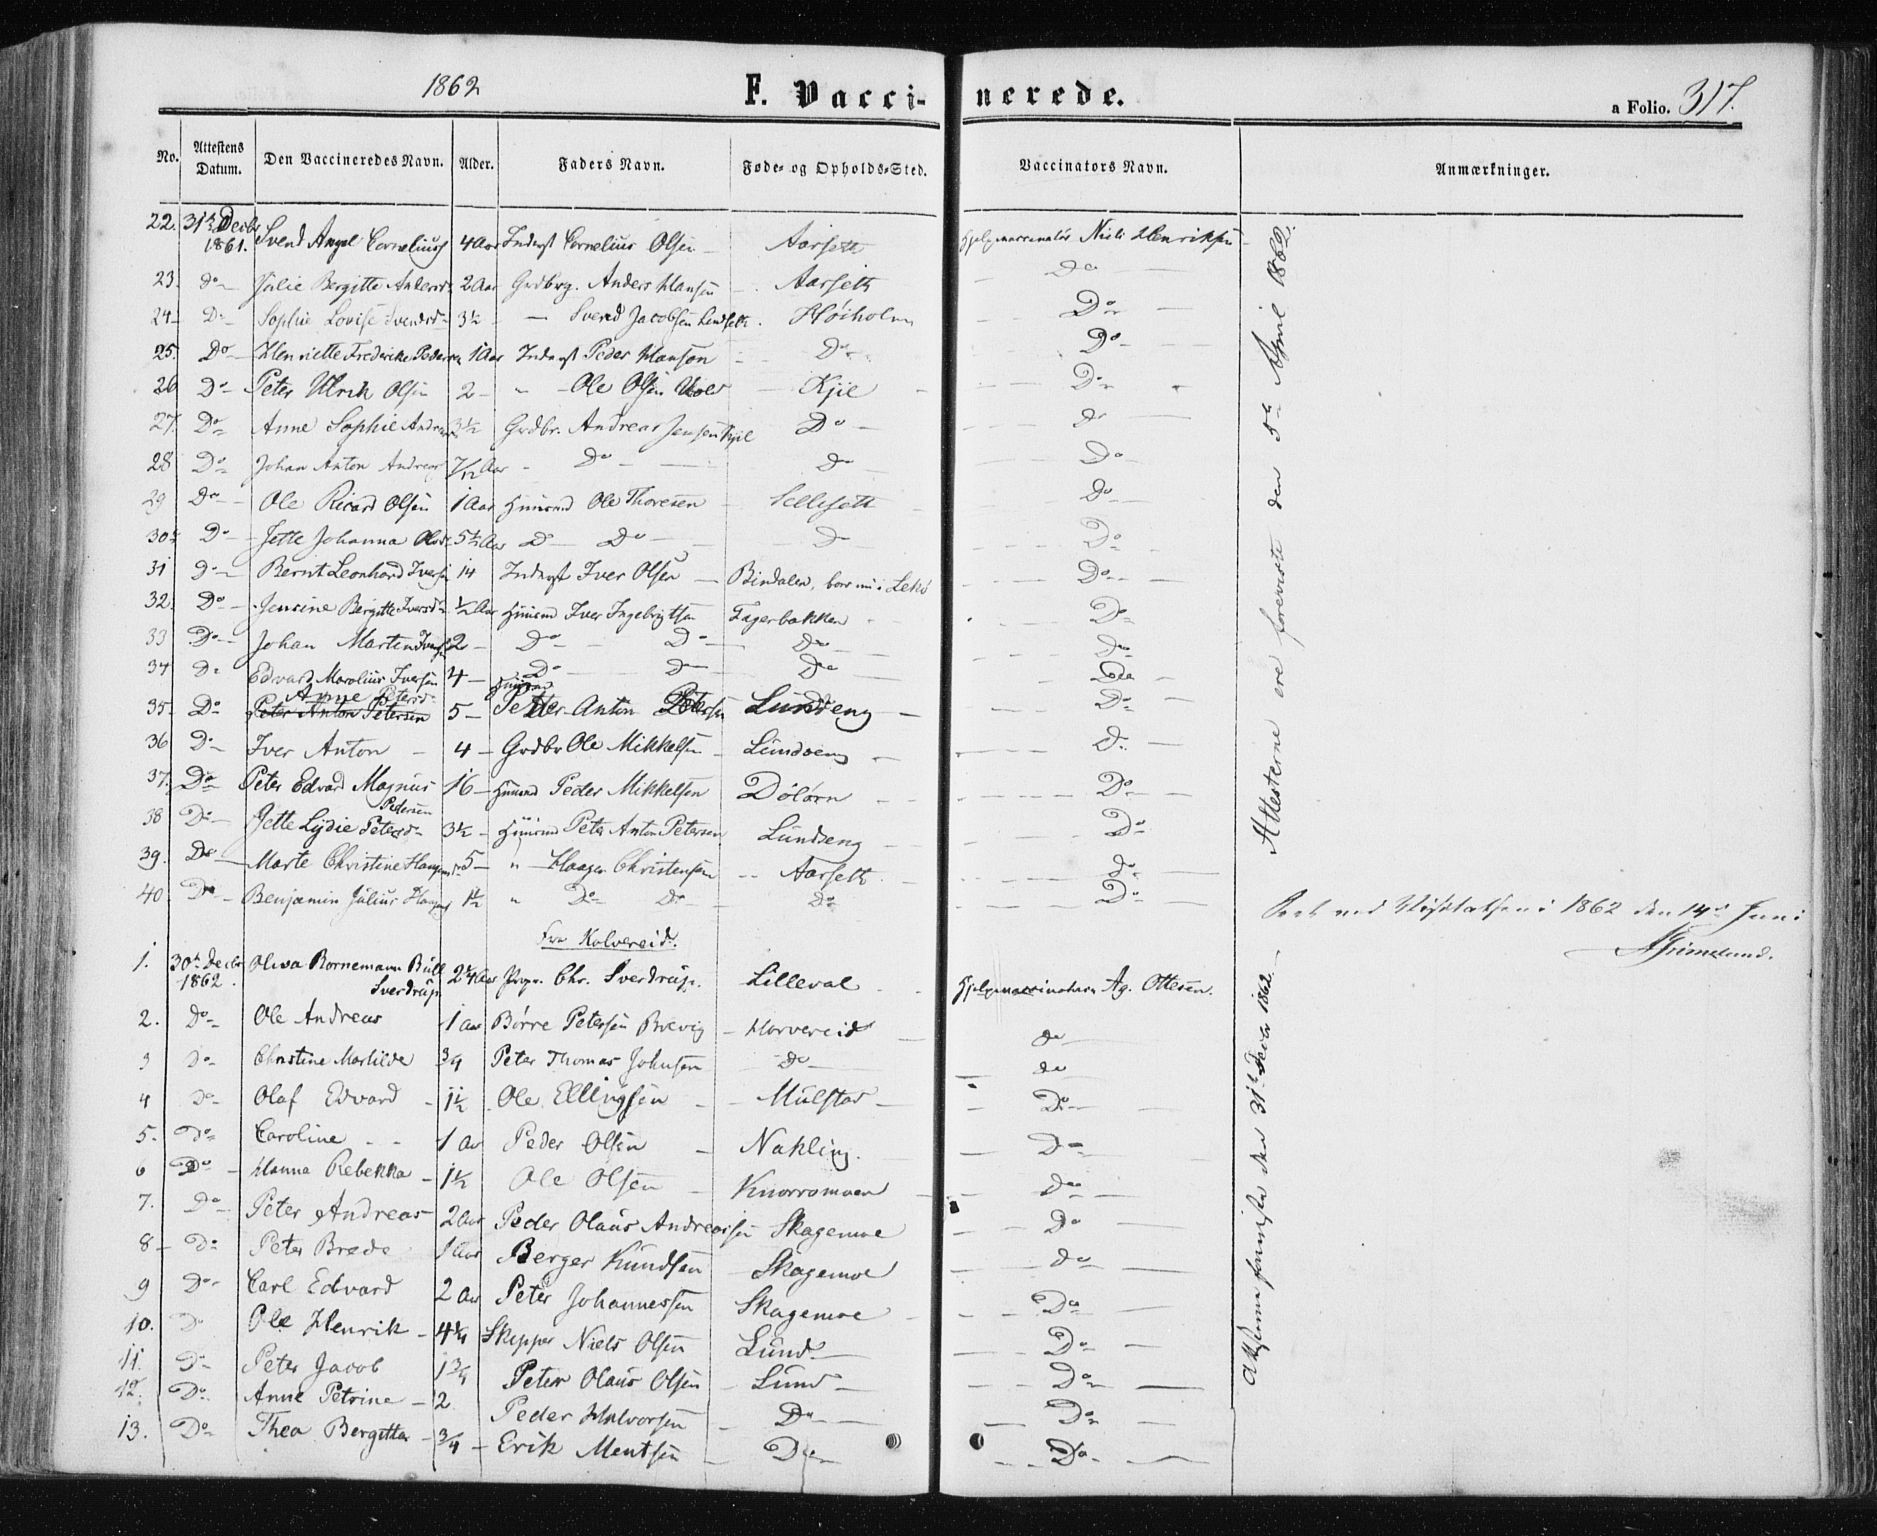 1862 F. Vacci- nerede. a Folio. 317.
No. Attestens Datum. Den Vaccineredes Navn. Alder. Faders Navn. Føde- og Opholds-Sted. Vaccinators Navn. Anmærkninger.
22. 31te Decbr 1861. Svend Angel Cornelius 4 Aar Indvst Cornelius Olsen Aarseth Hjelpevaccinatør Niels Henriksen
23. Do Julie Bergitte Andersd. 2 Aar Grdbrg. Anders Hansen Aarseth Do
24 Do Sophie Lovise Svendsd. 3½ Svend Jacobsen Høiholm Do
25. Do Henriette Fredericke Peders 1 Aar Inderst Peder Hanson Do Do
26 Do Peter Ulrik Olsen 2 " Ole Olsen Kjil Do
27. Do Anne Sophie Andreas 3½ Grdbr. Andreas Jensen Kjil Do do
28 Do Johan Anton Andreas 7/12 Aar Do do Do
29 Do Ole Ricard Olsen 1 Aar Huusmd Ole Thoresen Sellesett Do
30 Do Jette Johanna Olsd. 5½ Aar Do Do Do Do
31 Do Bernt Leonhard Iversen 14 Inderst Iver Olsen Bindalen, boer nu i Lekø Do
32. Do Jensine Bergitte Iversd. ½ Aar Huusmd Iver Ingebrigtsen Fagerbakken Do
33 Do Johan Martin Iversen 2 Do Do Do Do
34 Do Edvard Marolius Iversen 4 Do Do Do Do
35 Do Anne Petersd. Peter Anton Petersen 5 Huusmd Peter Anton Petersen Lundseng Do
36 Do Iver Anton 4 Grdbr Ole Mikkelsen Lundseng Do
37. Do Peter Edvard Magnus Pedersen 16 Huusmd Peder Mikkelsen Dølørn Do
38 Do Jette Lydie Petersd. 3½ Huusmd Peter Anton Petersen Lundseng Do
39. Do Marte Christine Haagensd. 5 " Haagen Christensen Aarseth Do
40 Do Benjamin Julius Haagens 1½ " Do Do Do Do
Attesterne ere foreviste den 5te April 1862.
Seet ved Visitatsen i 1862 den 14de Juni
Grimelund.
Fra Kolvereid.
1. 30te Decbr 1862. Oliva Bornemann Bull Sverdrup 2¼ Aar Prop. Chr. Sverdrup. Lilleval Hjelpevaccinatøren Ag. Ottesen.
2. Do Ole Andreas 1 Aar Børre Petersen Brevig Horvereid do
3 Do Christine Mathilde ¾ Peter Thomas Johnsen Do do
4 Do Olaf Edvard 1½ Ole Ellingsen Mulstad Do
5. Do Caroline 1 Aar Peder Olsen Nakling. Do
6 Do Hanna Rebekka 1½ Ole Olsen Knorromoen Do
7. Do Peter Andreas 2 Aar Peder Olaus Andreassen Skagemoe Do
8 Do Peter Brede 1 Aar Berger Kundsen Skagemoe do
9 Do Carl Edvard 2 Aar Peter Johannessen Skagemoe Do
10. Do Ole Henrik 4¼ Skipper Niels Olsen Lund Do
11. Do Peter Jacob 1¾ Peter Olaus Olsen Lund Do
12. Do Anne Petrine 2 Peder Halvorsen Do Do
13. Do Thea Bergitta ¾ Erik Mentsen Do Do
den 31te Decbr 1862.